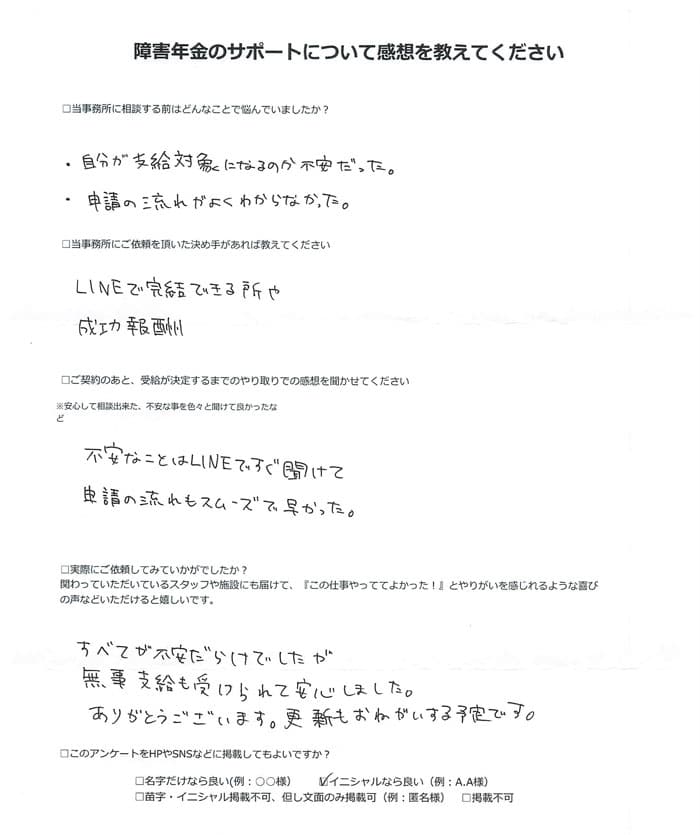 障害年金のサポートについて感想を教えてください
□当事務所に相談する前はどんなことで悩んでいましたか？
・自分が支給対象になるのか不安だった。
・申請の流れがよくわからなかった。
□当事務所にご依頼を頂いた決め手があれば教えてください
LINEで完結できる所や
成功報酬州
□ご契約のあと、受給が決定するまでのやり取りでの感想を聞かせてください
※安心して相談出来た、不安な事を色々と聞けて良かったな
ど
不安なことはLINEですぐ聞けて
申請の流れもスムーズで早かった。
□実際にご依頼してみていかがでしたか？
関わっていただいているスタッフや施設にも届けて、『この仕事やっててよかった！』とやりがいを感じれるような喜び
の声などいただけると嬉しいです。
すべてが不安だらけでしたが
無事支給も受けられて安心しました。
ありがとうございます。更新もおねがいする予定です。
□このアンケートをHPやSNSなどに掲載してもよいですか？
□名字だけなら良い(例：○○様）　☑イニシャルなら良い（例：A.A様）
□苗字・イニシャル掲載不可、但し文面のみ掲載可（例：匿名様）　□掲載不可